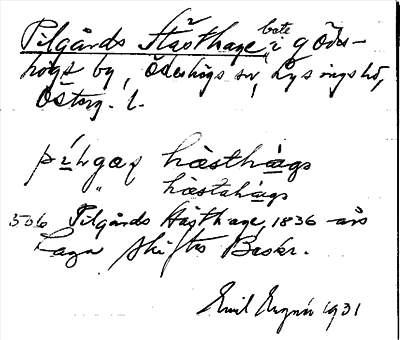 Pilgårds Hästhage, bete i g Ödes-
högs by, Ödeshögs sn, Lysings hd,
Österg. l.
hàsthàgs
" hàstahàgs
506 Pilgårds Hästhage, 1836-års
Laga Skiftes Beskr.
Emil 1931